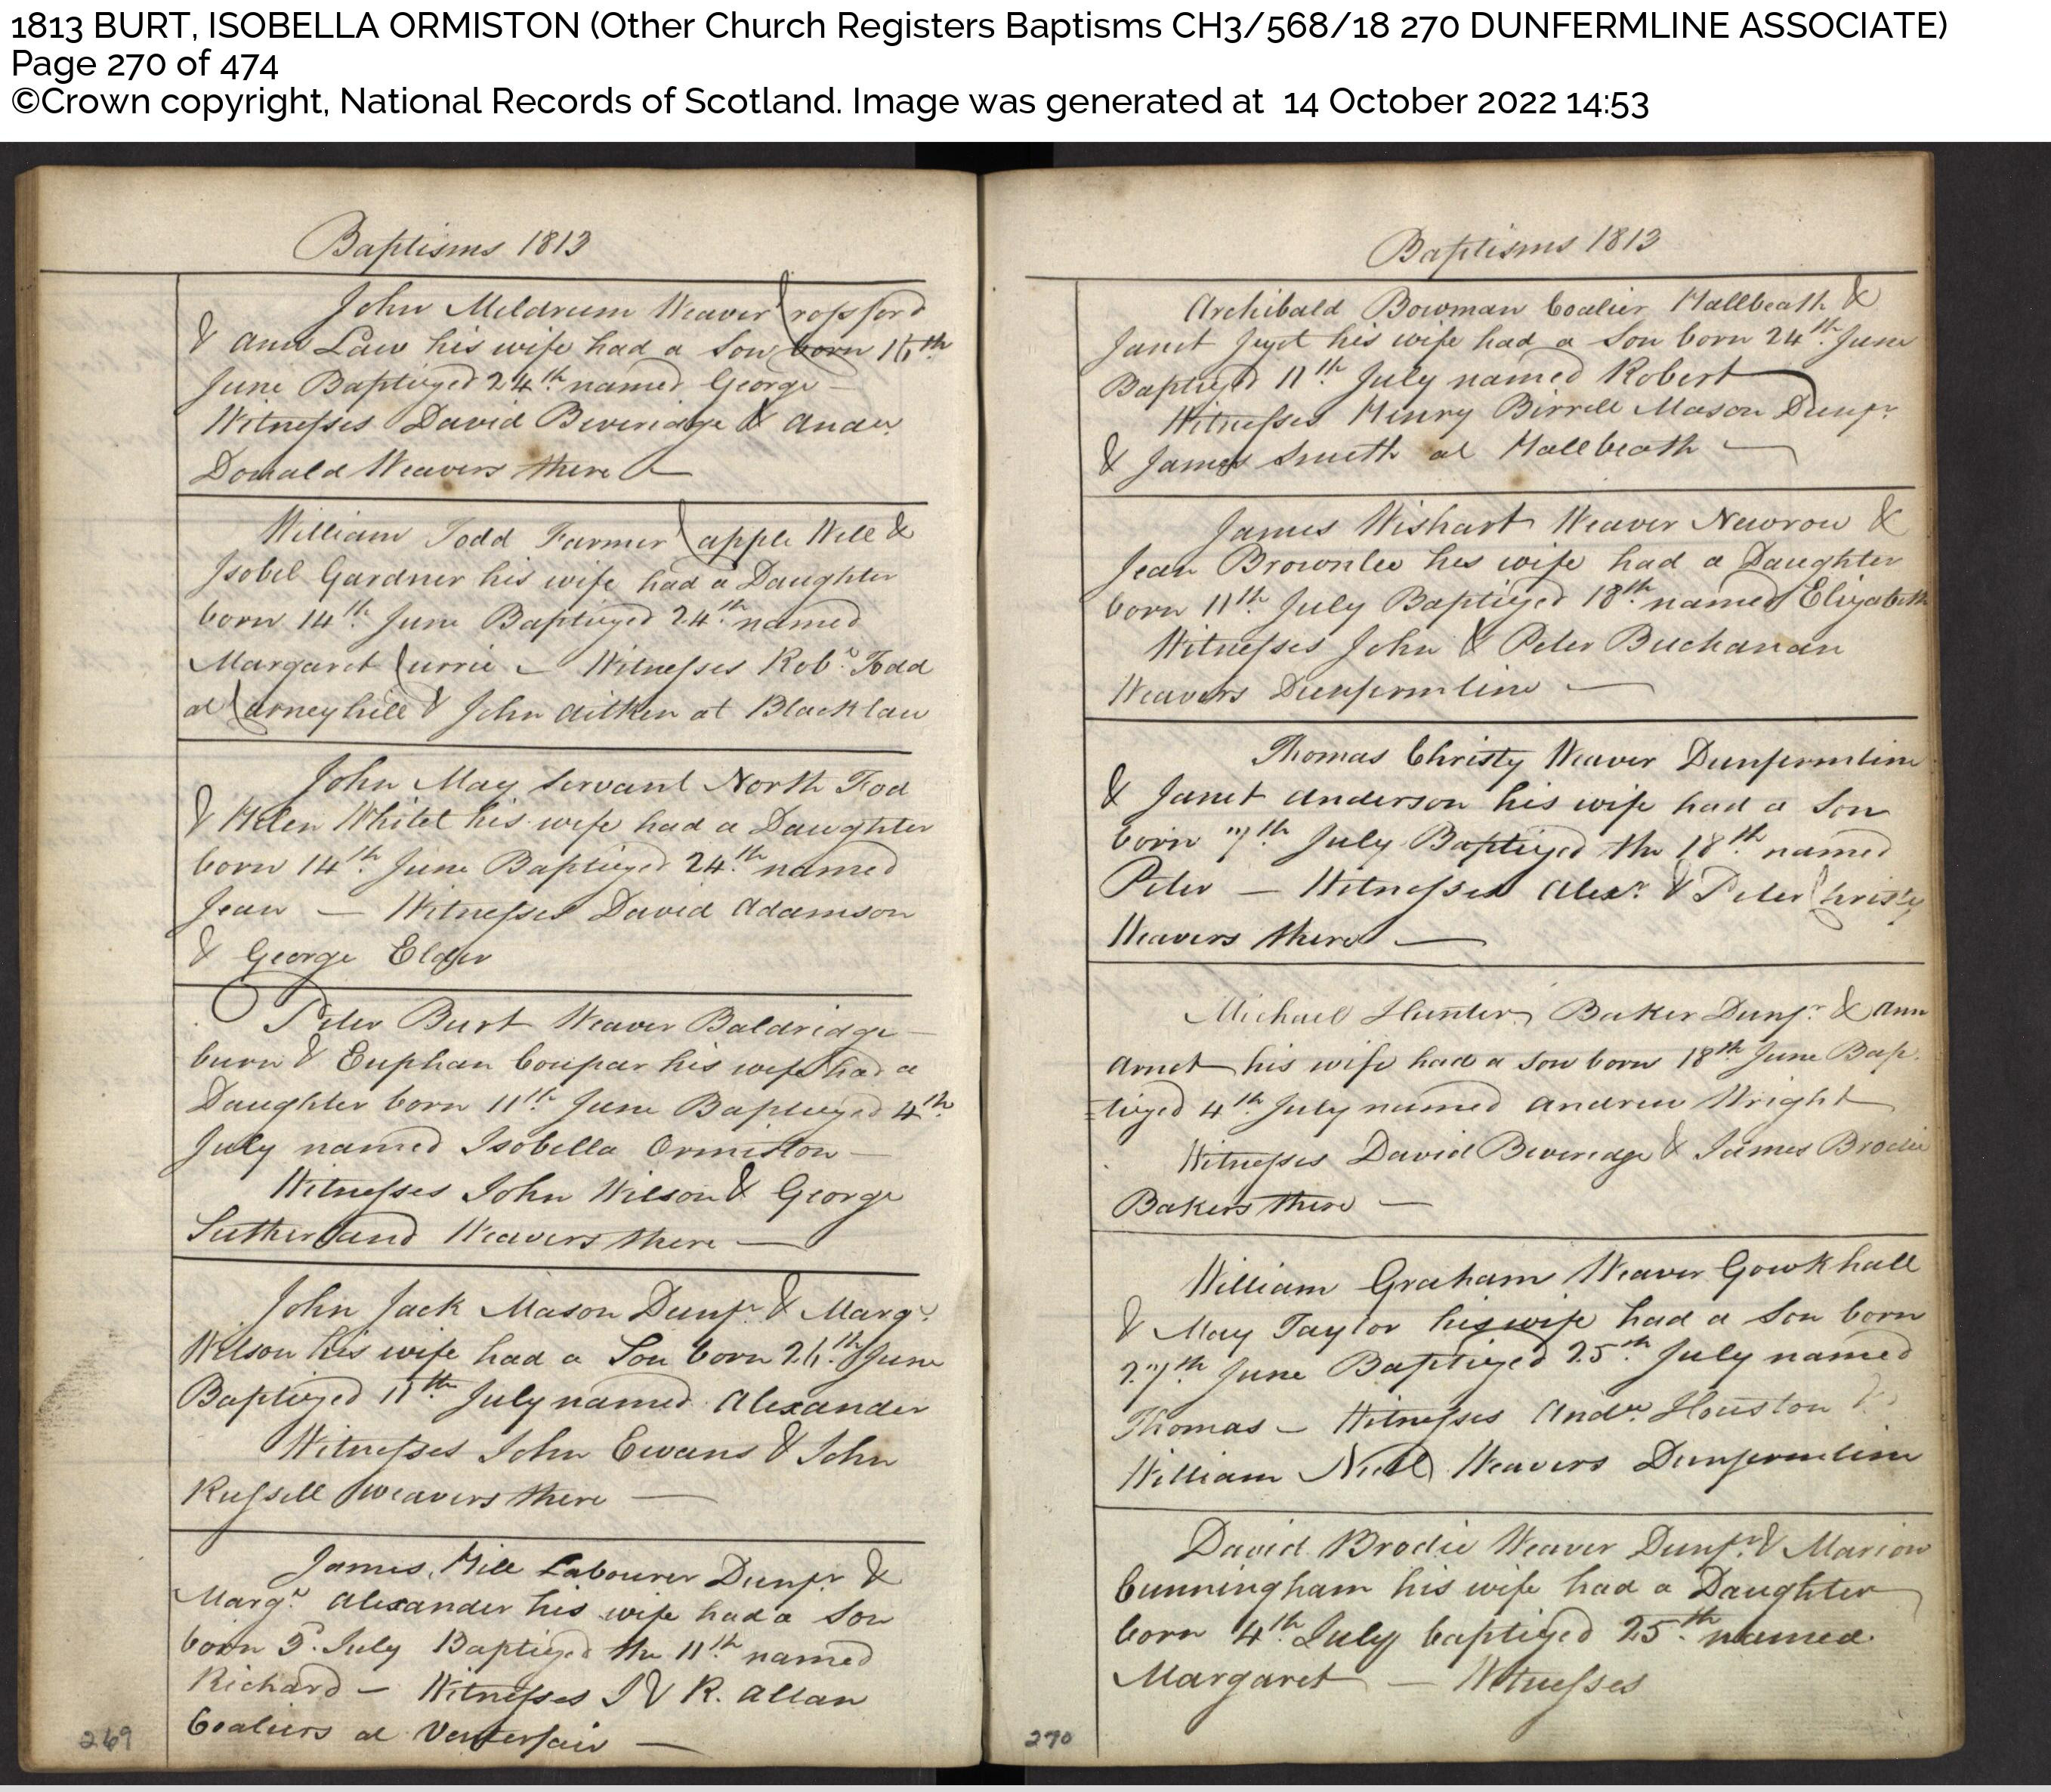 1813 BURT, ISOBELLA ORMISTON (Other Church Registers Baptisms CH3/568/18 270 DUNFERMLINE ASSOCIATE)
Page 270 of 474
©Crown copyright, National Records of Scotland. Image was generated at 14 October 2022 14:53
Baptisms 1813
John Meldrum Weaver Crossford
& Ann Law his wife had a Son born 16th
June Baptized 24th named George —
Witnesses David Beveridge & Andw.
Donald Weavers there —
William Todd Farmer Capple Well &
Isobel Gardner his wife had a Daughter
born 14th June Baptized 24th named
Margaret Currie — Witnesses Robt. Todd
at Carneyhill & John Aitken at Blacklaw
John May Servant North Fod
& Helen Whitet his wife had a Daughter
born 14th June Baptized 24th named
Jean — Witnesses David Adamson
& George Elder
Peter Burt Weaver Baldridge
burn & Euphan Coupar his wife had a
Daughter born 11th June Baptized 4th
July named Isobella Ormiston —
Witnesses John Wilson & George
Sutherland Weavers there —
John Jack Mason Dunfr. & Margt.
Wilson his wife had a Son born 26th June
Baptized 11th July named Alexander
Witnesses John Ewans & John
Russell Weavers there —
James Hill Labourer Dunfr &
Margt. Alexander his wife had a Son
born 5. July Baptized the 11th named
Richard — Witnesses J & R. Allan
Coaliers at Venterfair —
269
Baptisms 1813
Archibald Bowman Coalier Hallbeath &
Janet his wife had a Son born 24th June
Baptized 11th July named Robert —
Witnesses Henry Birrell Mason Dunfr.
& James Smith at Hallbeath —
James Wishart Weaver Newrow &
Jean Brownlee his wife had a Daughter
born 11th July Baptized 18th named Elizabeth
Witnesses John & Peter Buchanan
Weavers Dunfermline —
Thomas Christy Weaver Dunfermline
& Janet Anderson his wife had a Son
born 7th July Baptized the 18th named
Peter — Witnesses Alexr. & Peter Christy
Weavers there —
Michael Hunter Baker Dunfr. & Ann
Arnot his wife had a Son born 18th June Bap
=tized 4th July named Andrew Wright
Witnesses David Beveridge & James Brodie
Bakers there —
William Graham Weaver Gowkhall
& May Taylor his wife had a Son born
27th June Baptized 25th July named
Thomas — Witnesses Andw. Houston &
William Neil Weavers Dunfermline
David Brodie Weaver Dunfr. & Marion
Cunningham his wife had a Daughter
born 4th July baptized 25th named
Margaret — Witnesses
270